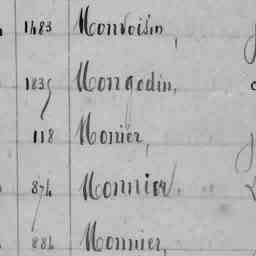 1483 Monvoisin,
1835 Mongodin,
118 Monier,
874 Monnier.
884 Monnier,